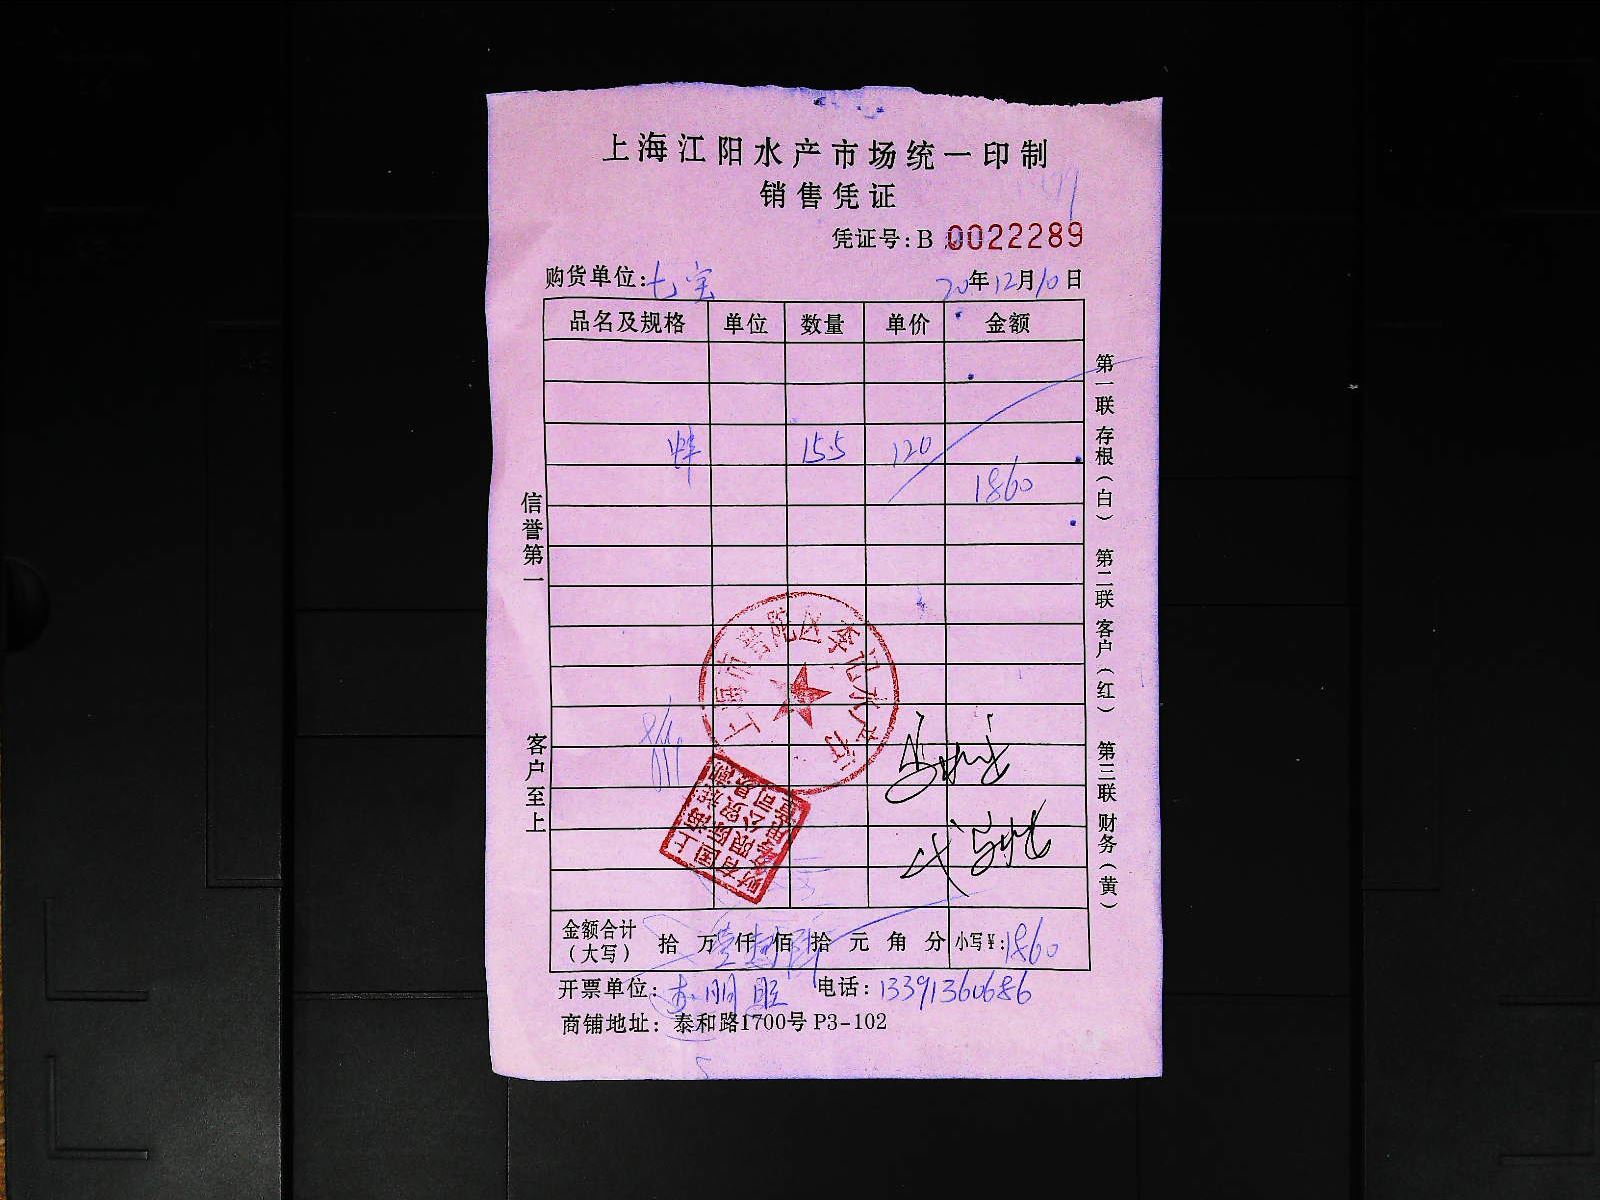 上海江阳水产市场统一印制
销售凭证
凭证号:B 0022289
购货单位:七宝 20年12月10日
品名及规格 单位 数量 单价 金额
蚌 155 120
1860
信誉第一
客户至上
第一联 存根(白) 第二联 客户(红) 第三联 财务(黄)
上海市普陀区李记水产行
金额合计(大写) 拾 万 仟 佰 拾 元 角 分 小写¥:1860
开票单位: 电话:13391360686
商铺地址: 泰和路1700号 P3-102